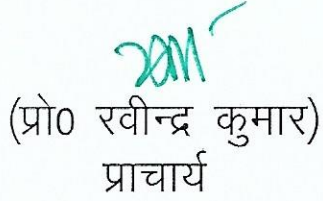 (प्रो0 रवीन्द्र कुमार)
प्राचार्य